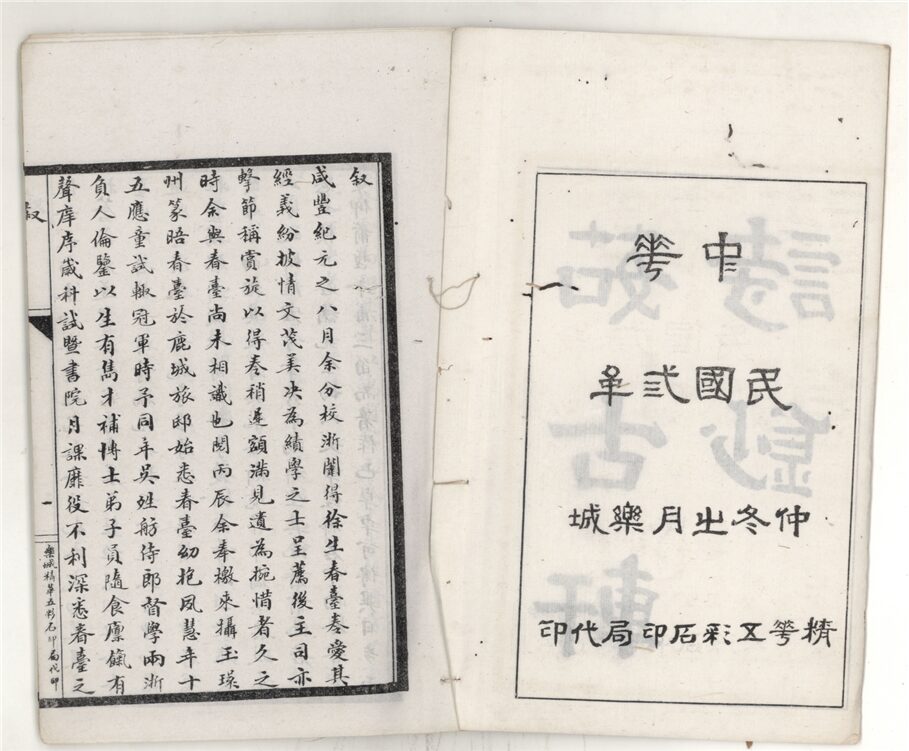 中華
民國弍年
仲冬之月樂城
精華五彩石印局代印
叙
咸豐紀元之八月余分校浙闈得徐生春臺卷愛其
經義紛披情文茂美决為績學之士呈薦後主司亦
擊節稱賞旋以得卷稍遲額滿見遺為惋惜者久之
時余與春臺尚未相識也閱丙辰余奉檄來攝玉環
州篆晤春臺於鹿城旅邸始悉春臺幼抱夙慧年十
五應童試輙冠軍時予同年吳姓舫侍郎督學兩浙
負人倫鑒以生有雋才補博士弟子員隨食廪餼有
聲庠序歲科試暨書院月課靡役不利深悉春臺之
叙
一
樂城精華五彩石印局代印